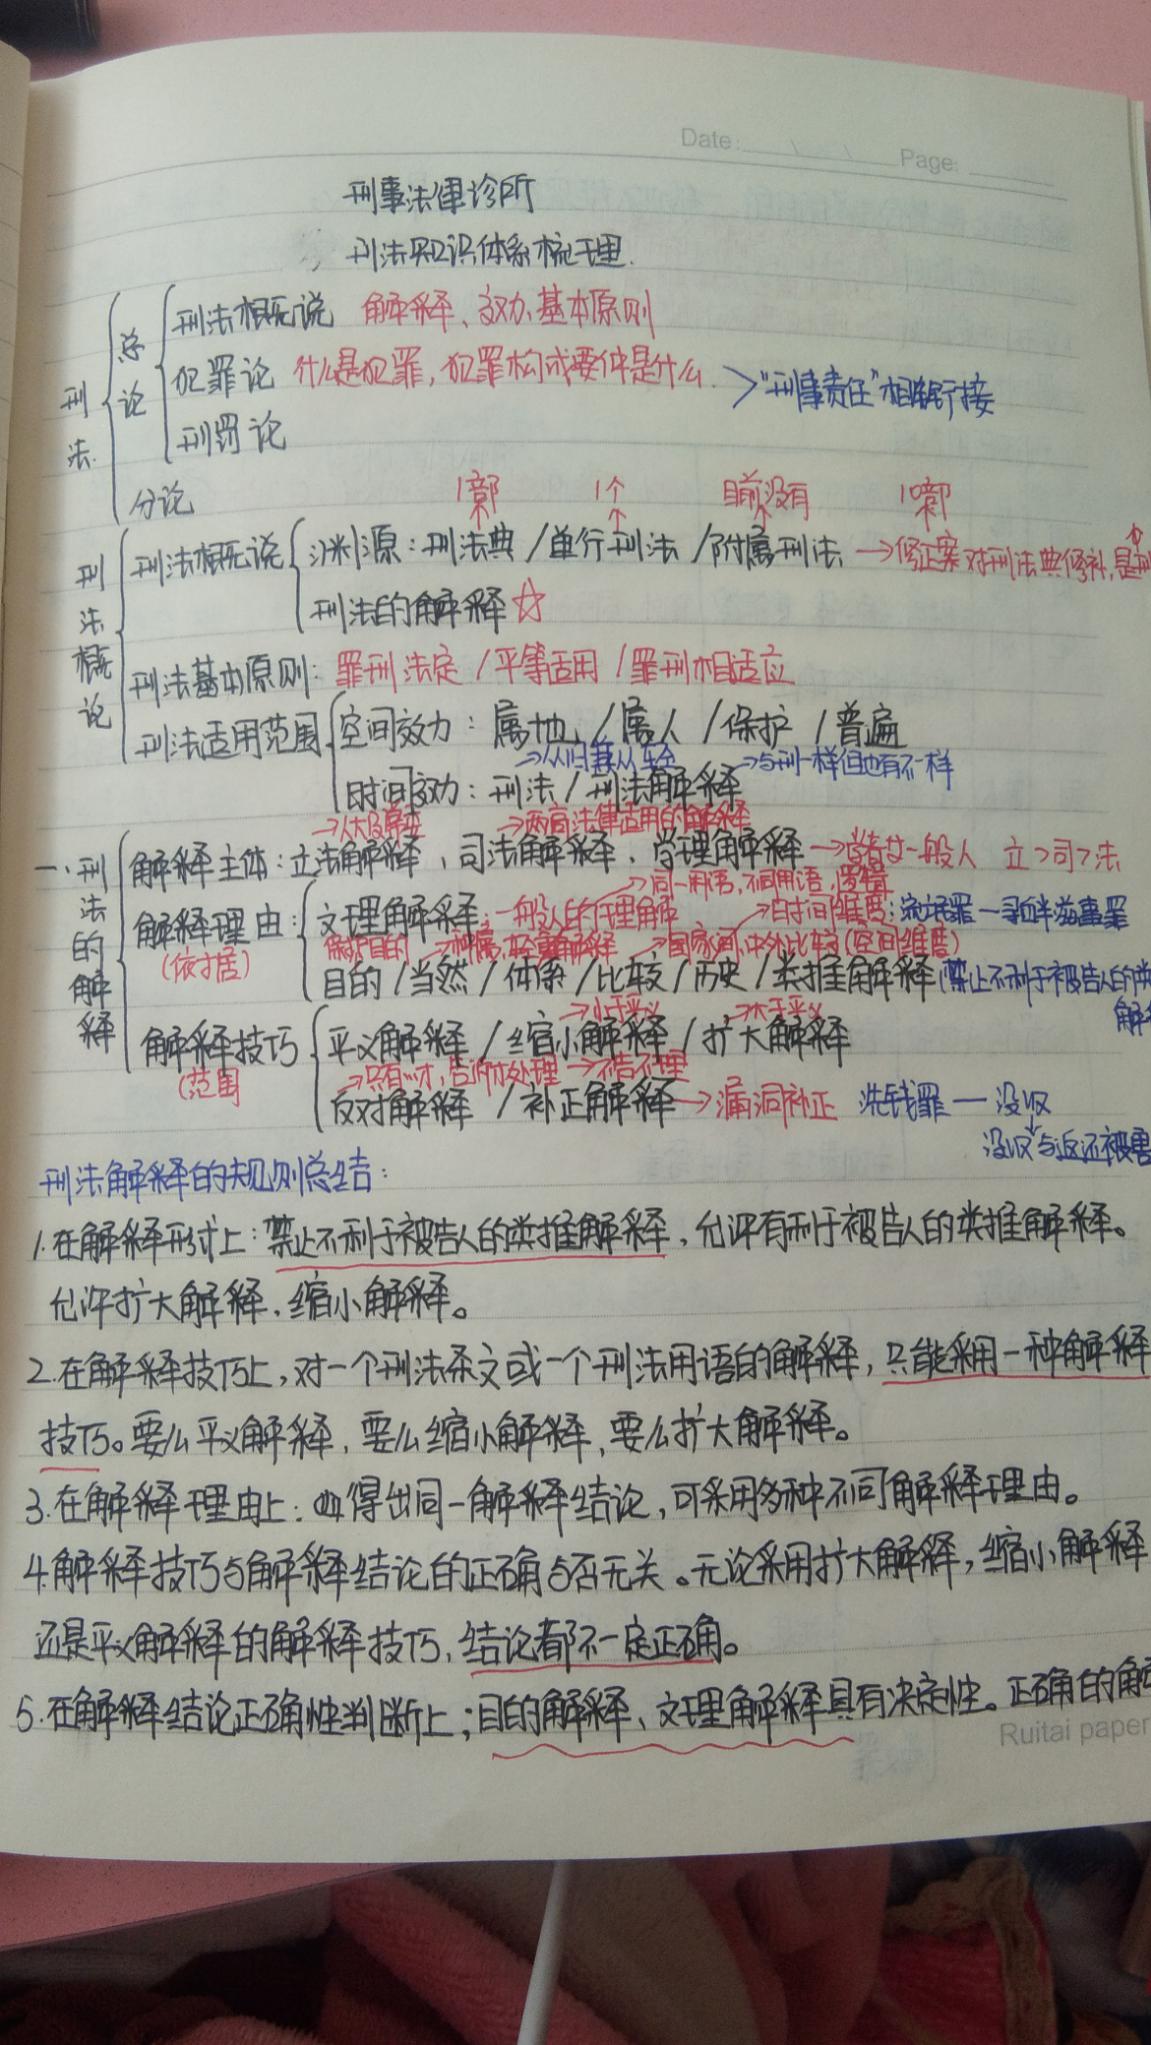 Date: Page:
刑事法律诊所
刑法知识体系梳理.
刑法
总论
刑法概说 解释、效力、基本原则
犯罪论 什么是犯罪,犯罪构成要件是什么. > "刑事责任"相衔接
刑罚论
分论
1部 1个 目前没有 10部
刑法概论
刑法概说
渊源:刑法典/单行刑法/附属刑法→修正案对刑法典修补,是刑
刑法的解释☆
刑法基本原则:罪刑法定/平等适用/罪刑相适应
刑法适用范围
空间效力:属地/属人/保护/普遍
→从旧兼从轻 →与刑一样但也有不一样
时间效力:刑法/刑法解释
→人大及常委 →两高法律适用的解释
一、刑法的解释
解释主体:立法解释、司法解释、学理解释→学者+一般人 立>司>法
→同一用语,不同用语,逻辑
解释理由:(依据)
文理解释:一般人的理解 →时间维度:流氓罪—寻衅滋事罪
保护目的 →种属,轻重解释 →国家间,中外比较(空间维度)
目的/当然/体系/比较/历史/类推解释(禁止不利于被告人的类
解释
→小于平义 →大于平义
解释技巧(范围
平义解释/缩小解释/扩大解释
→只有…才,告诉才处理→不告不理
反对解释/补正解释→漏洞补正 洗钱罪—没收
没收与返还被害
刑法解释的规则总结:
1.在解释形式上:禁止不利于被告人的类推解释,允许有利于被告人的类推解释。
允许扩大解释,缩小解释。
2.在解释技巧上,对一个刑法条文或一个刑法用语的解释,只能采用一种解释
技巧。要么平义解释,要么缩小解释,要么扩大解释。
3.在解释理由上:得出同一解释结论,可采用多种不同解释理由。
4.解释技巧与解释结论的正确与否无关。无论采用扩大解释,缩小解释
还是平义解释的解释技巧,结论都不一定正确。
5.在解释结论正确性判断上;目的解释、文理解释具有决定性。正确的解
Ruitai paper